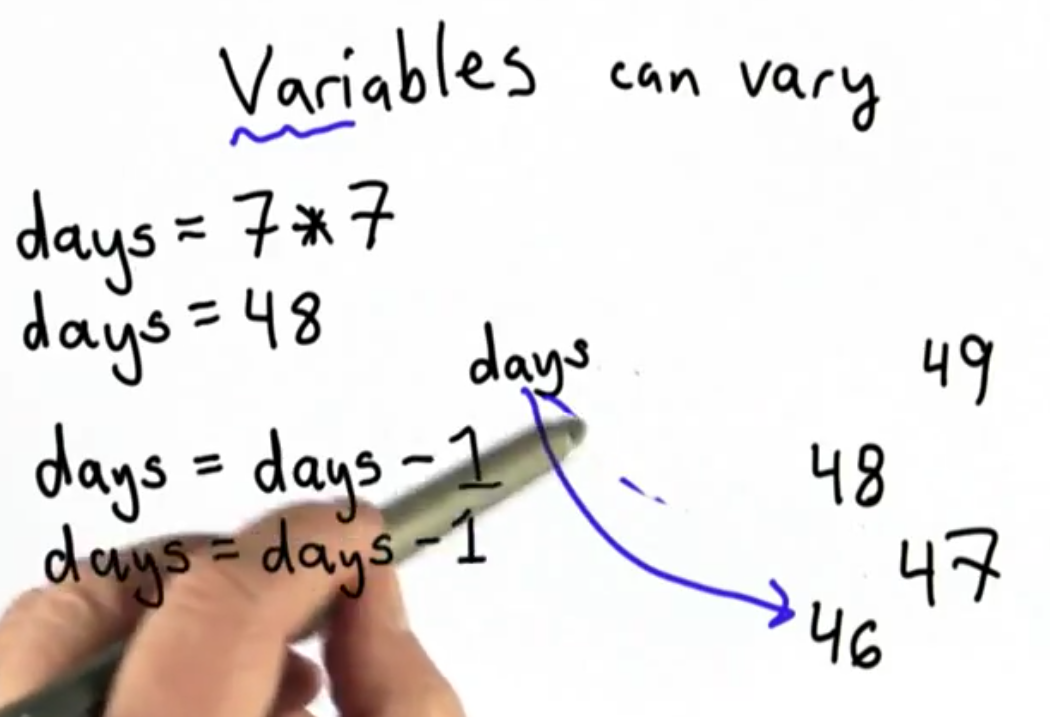 Variables can vary
days = 7 * 7
days = 48
days = days - 1
days = days - 1
days
49
48
47
46